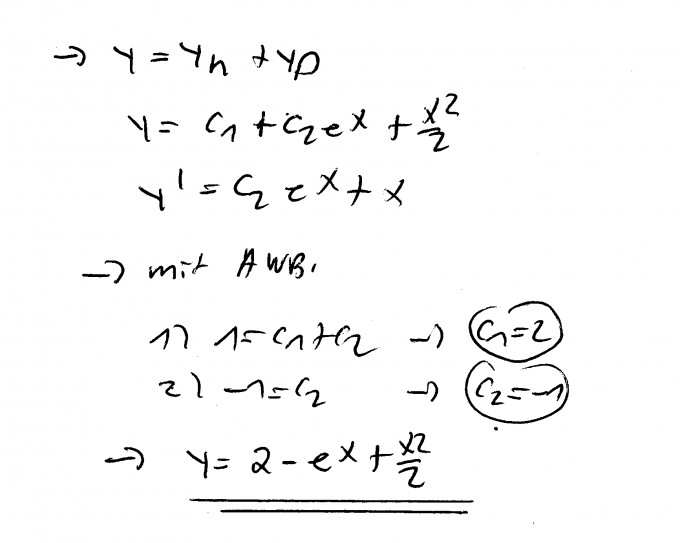 → y = yh + yp
y = C₁ + C₂eˣ + x²/2
y' = C₂eˣ + x
→ mit AWB.
1) 1 = C₁ + C₂ → C₁ = 2
2) -1 = C₂ → C₂ = -1
→ y = 2 - eˣ + x²/2